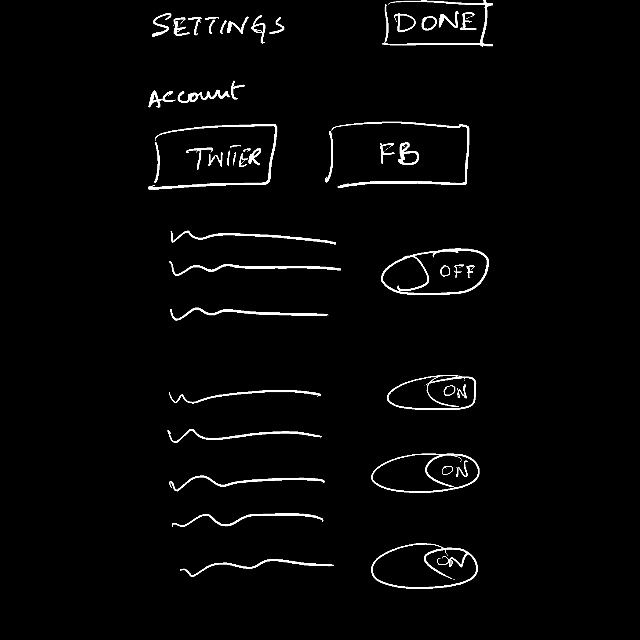 SETTINGS DONE
Account
TWITTER FB
OFF
ON
ON
ON